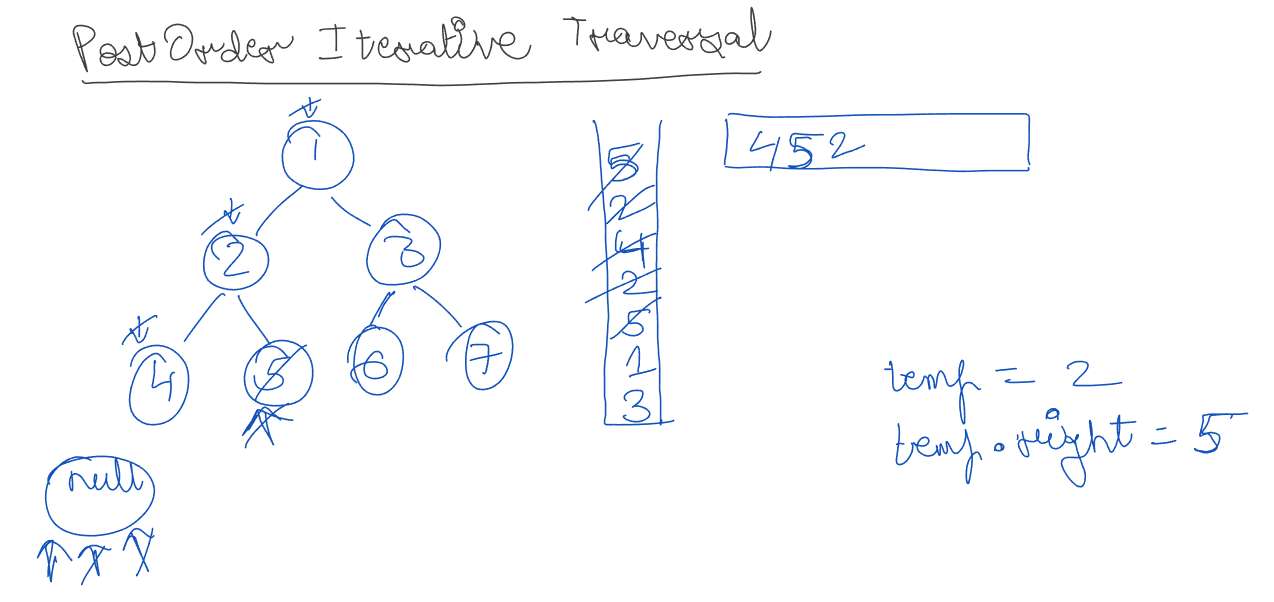 PostOrder Iterative Traversal
1
2
3
4
5
6
7
null
5
2
4
2
5
1
3
452
temp = 2
temp.right = 5